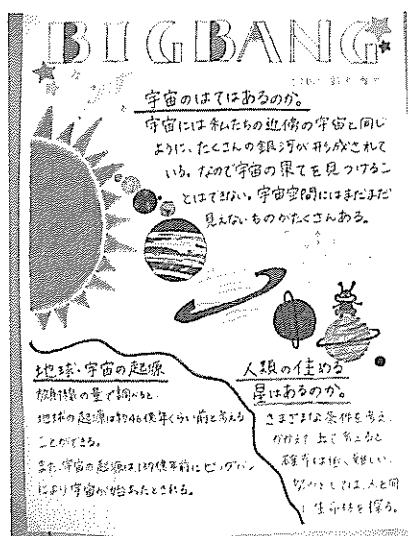 BIGBANG
宇宙のはてはあるのか。
宇宙には私たちの近傍の宇宙と同じ
ように、たくさんの銀河が形成されて
いる。なので宇宙の果てを見つけるこ
とはできない。宇宙空間にはまだまだ
見えないものがたくさんある。
地球・宇宙の起源
の量で調べると
地球の起源は約46億年くらい前と考える
ことができる。
また、宇宙の起源は137億年前にビッグバン
により宇宙が始まったとされる。
人類の住める
星はあるのか。
さまざまな条件を考え、
難しい。
生命体を探る。